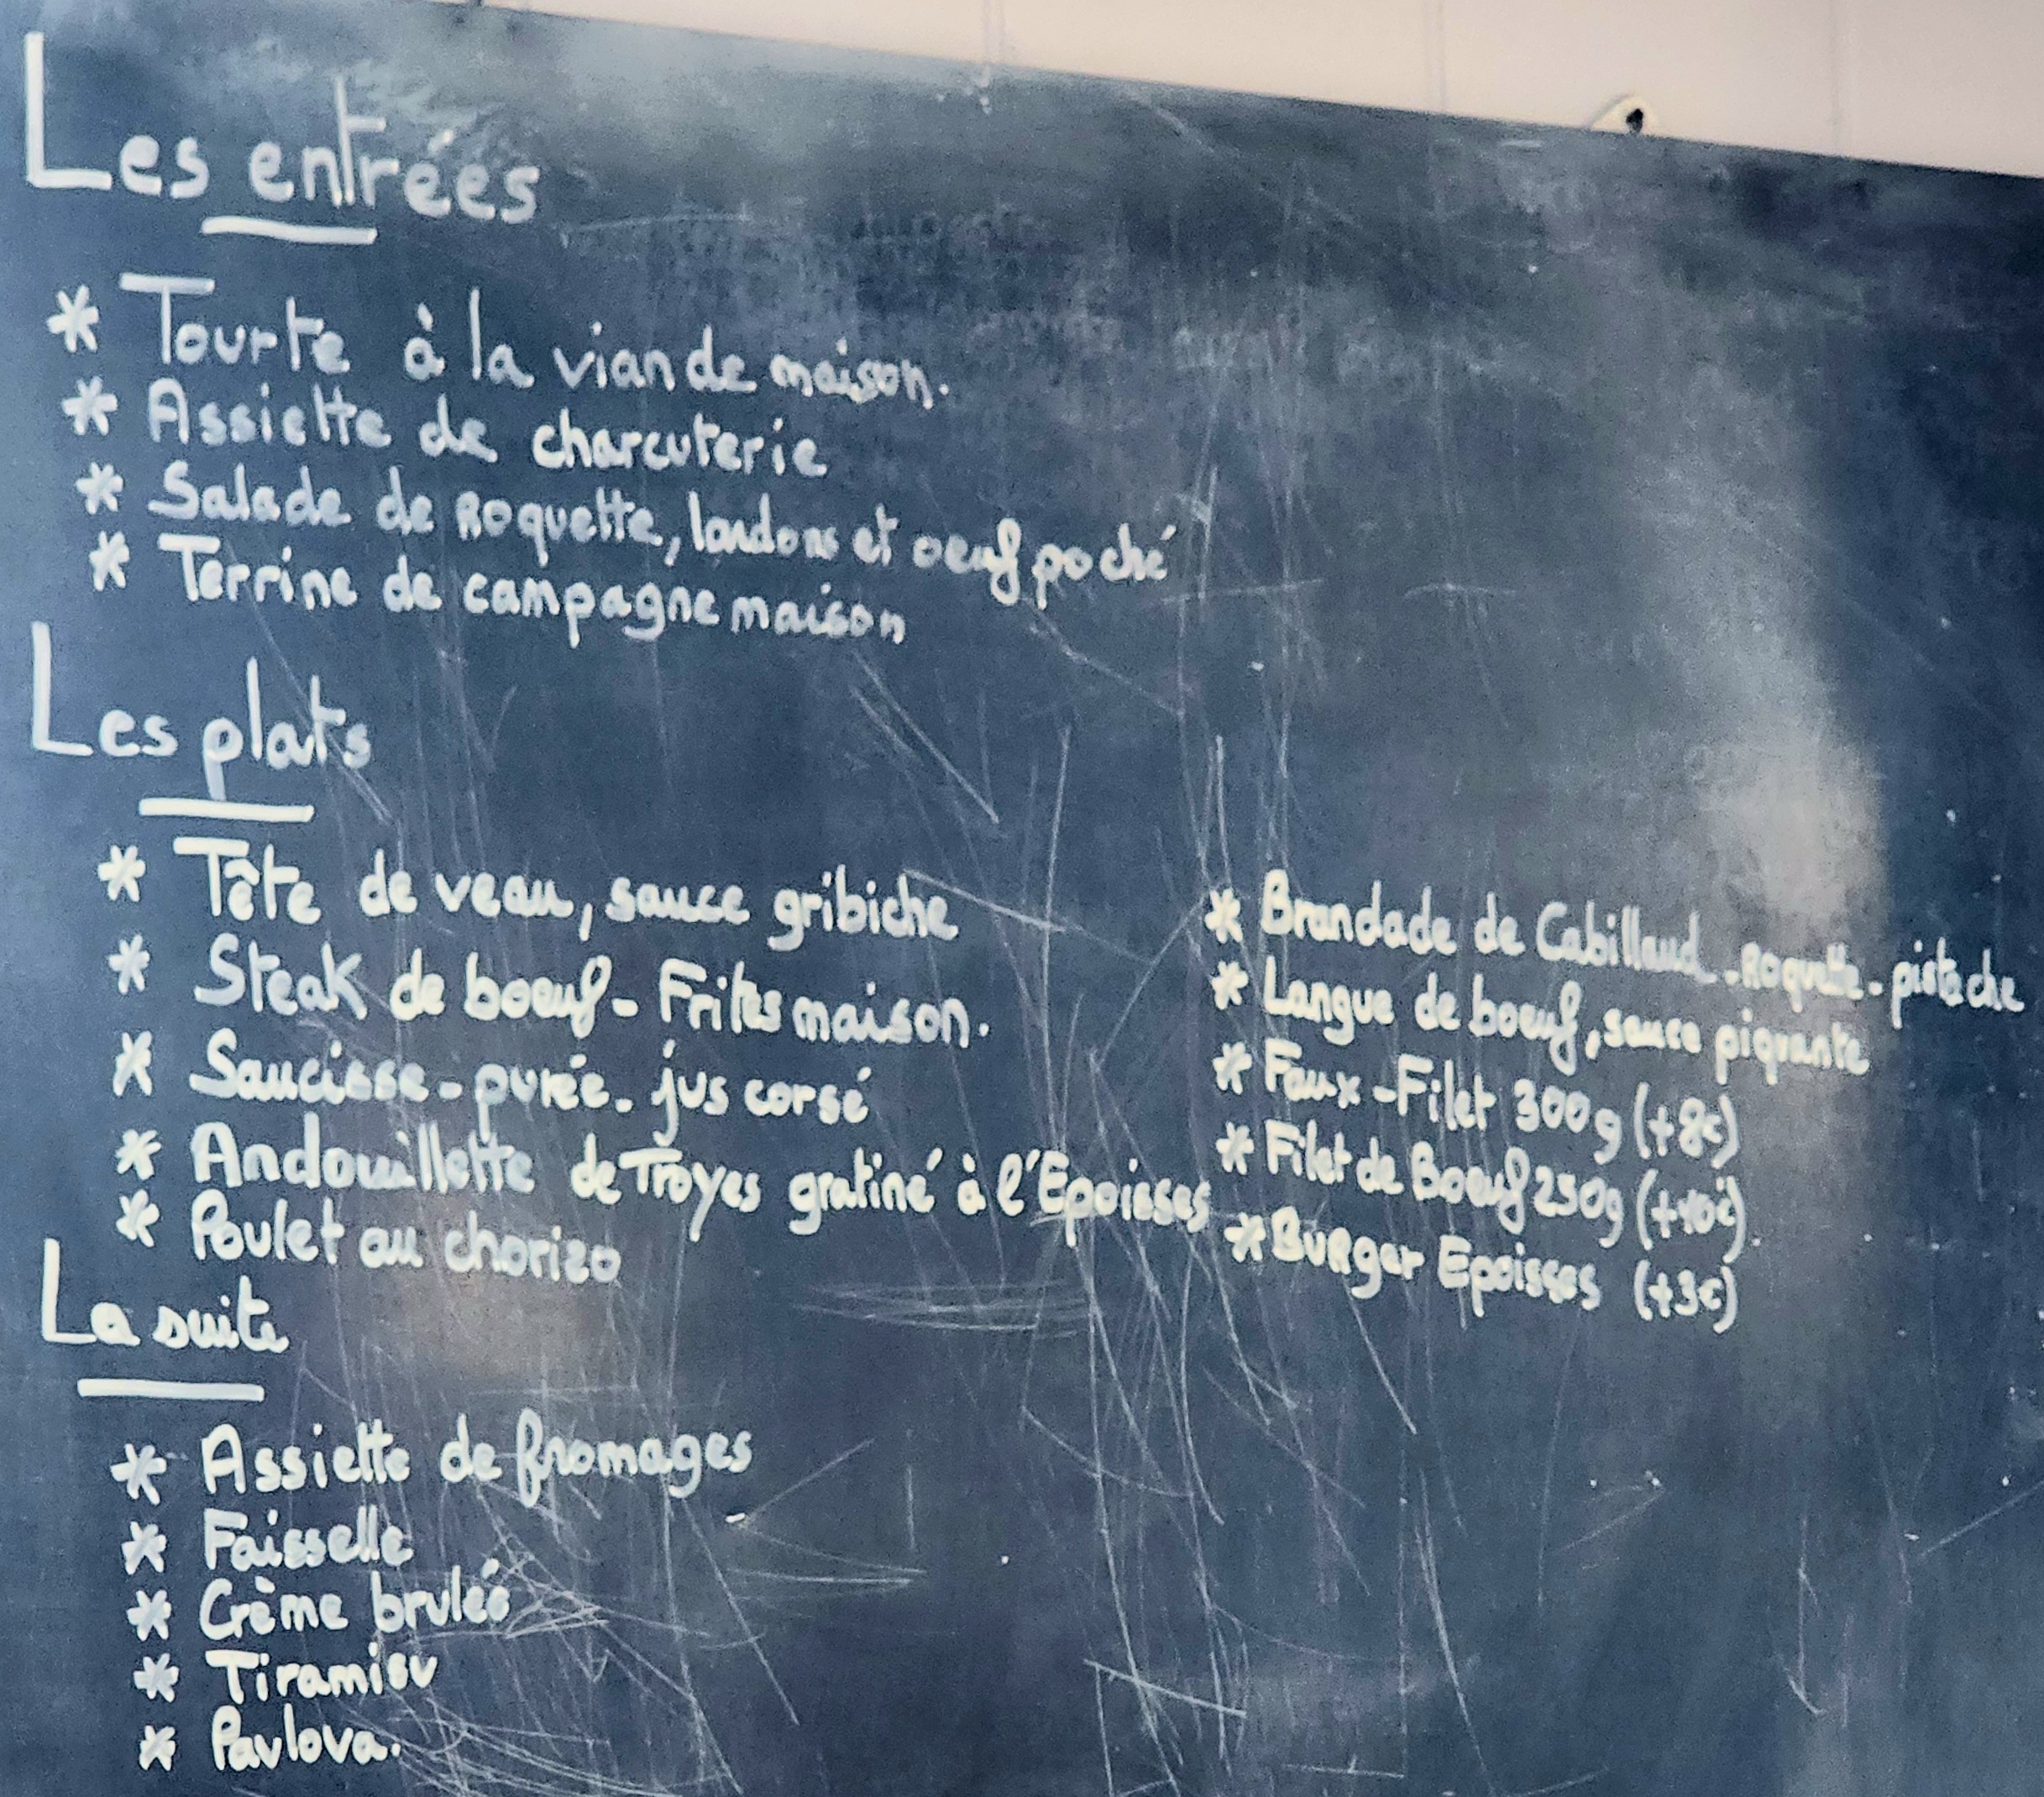 Les entrées
* Tourte à la viande maison.
* Assiette de charcuterie
* Salade de Roquette, lardons et oeuf poché
* Terrine de campagne maison
Les plats
* Tête de veau, sauce gribiche
* Steak de boeuf - Frites maison.
* Saucisse - purée - jus corsé
* Andouillette de Troyes gratiné à l'Epoisses
* Poulet au chorizo
* Brandade de Cabillaud - Roquette - pistache
* Langue de boeuf, sauce piquante
* Faux-Filet 300g (+8€)
* Filet de Boeuf 250g (+10€)
* Burger Epoisses (+3€)
La suite
* Assiette de fromages
* Faisselle
* Crème brulée
* Tiramisu
* Pavlova.